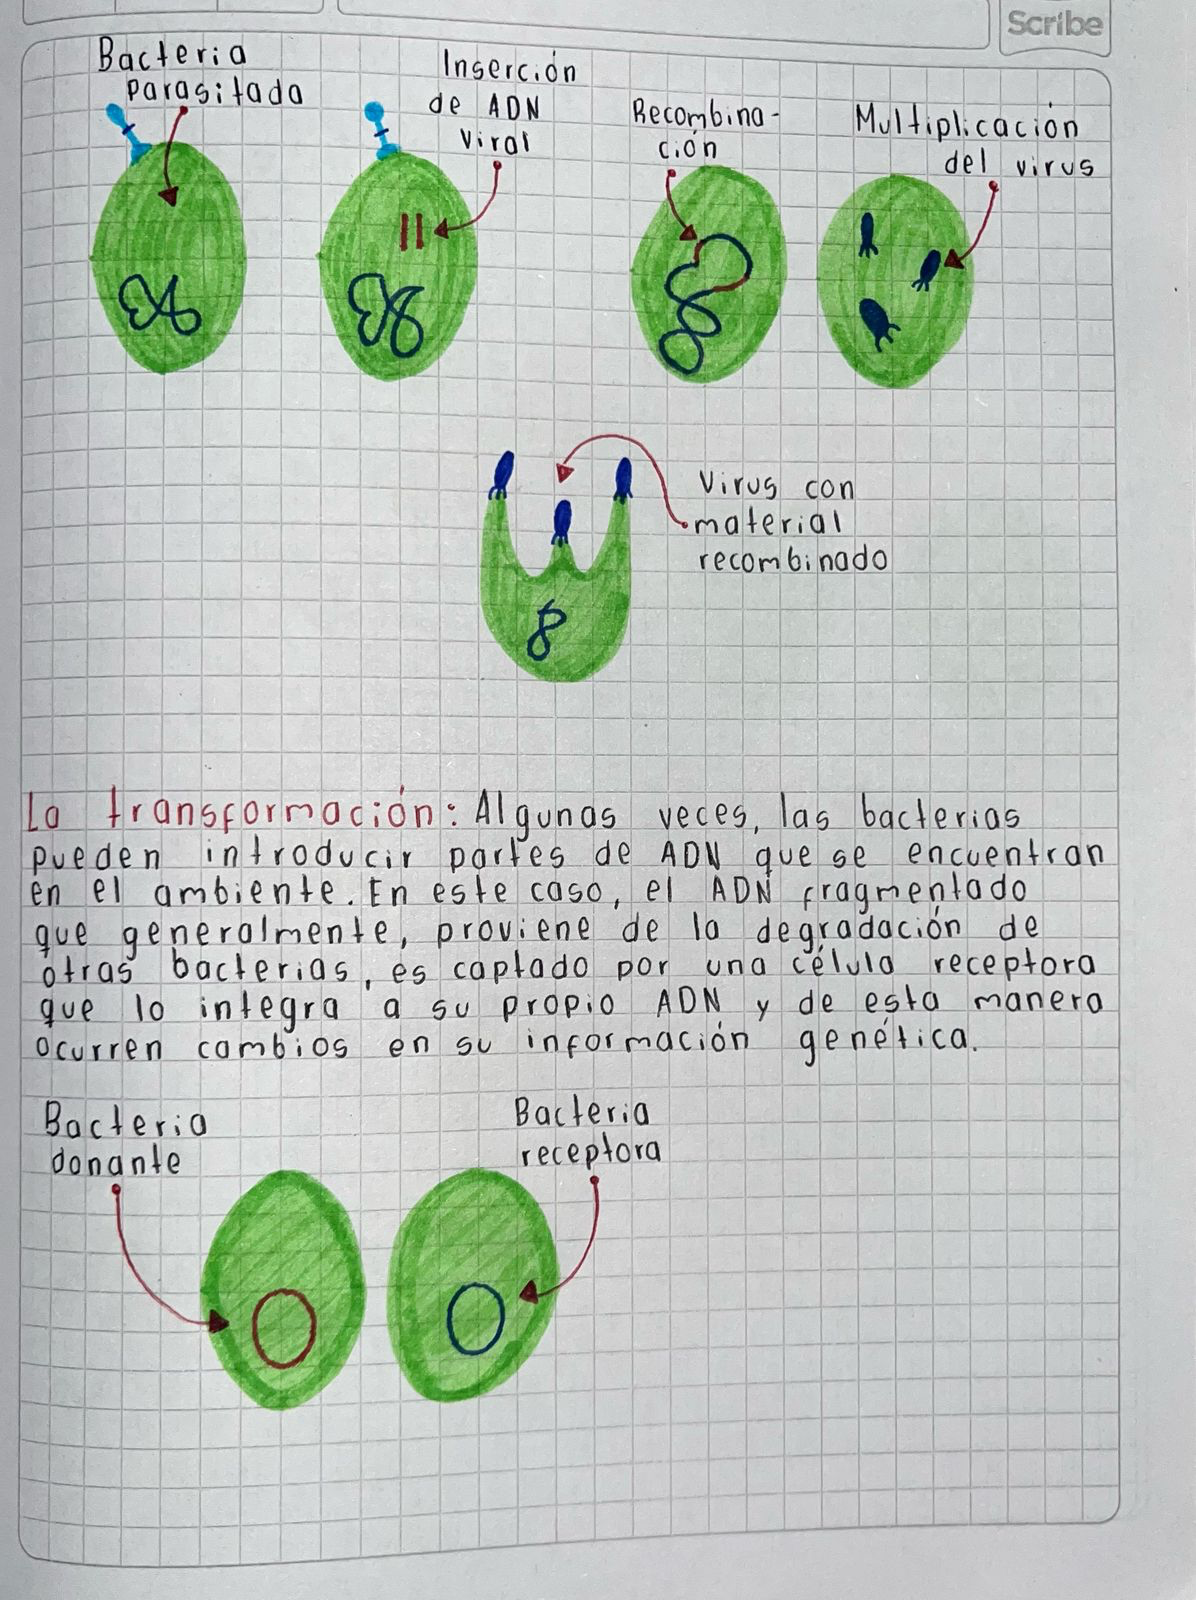 Scribe
Bacteria
parasitada
Inserción
de ADN
viral
Recombina-
ción
Multiplicación
del virus
Virus con
material
recombinado
La transformación: Algunas veces, las bacterias
pueden introducir partes de ADN que se encuentran
en el ambiente. En este caso, el ADN fragmentado
que generalmente, proviene de la degradación de
otras bacterias, es captado por una célula receptora
que lo integra a su propio ADN y de esta manera
ocurren cambios en su información genética.
Bacteria
donante
Bacteria
receptora